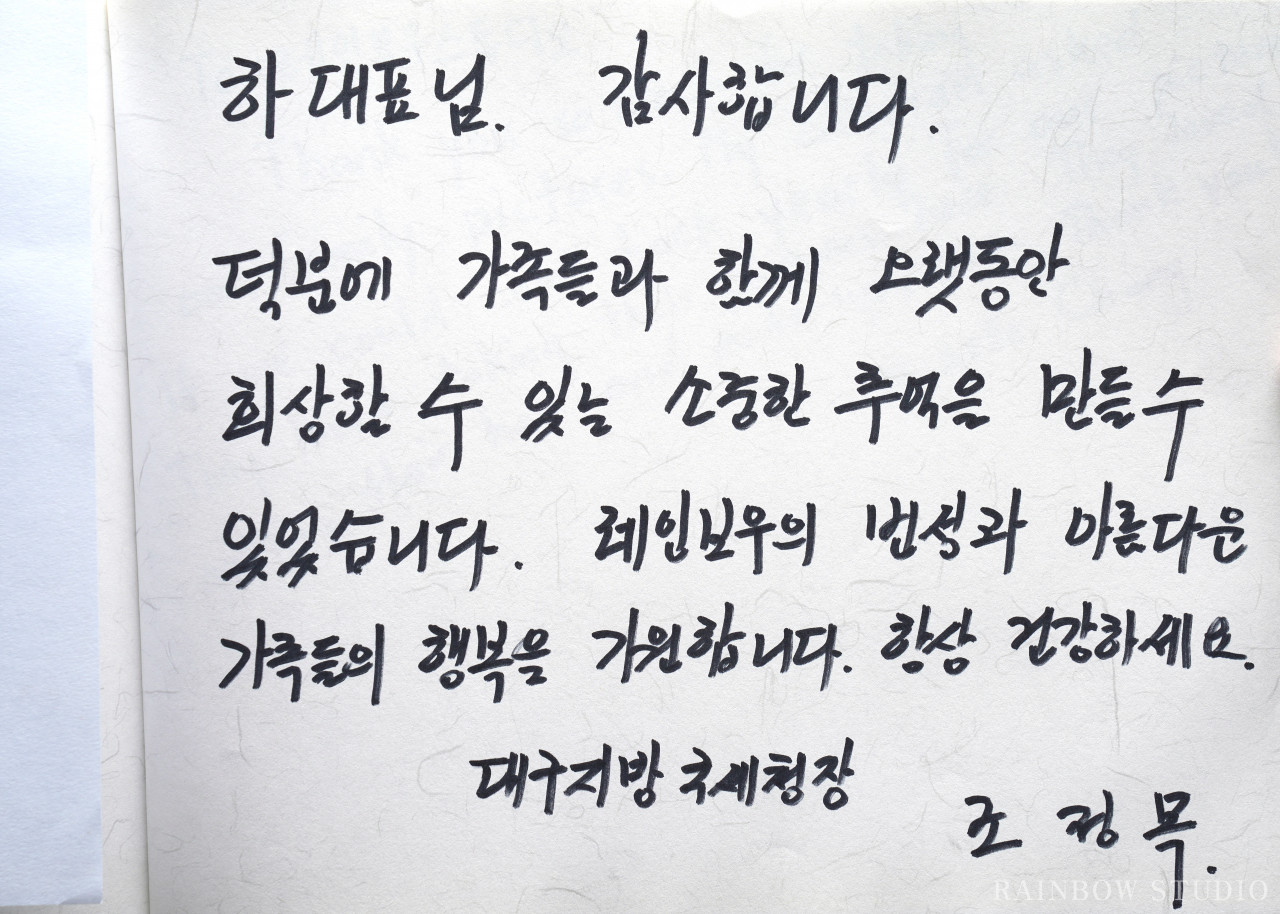 하 대표님. 감사합니다.
덕분에 가족들과 함께 오랫동안
회상할 수 있는 소중한 추억을 만들 수
있었습니다. 레인보우의 번성과 아름다운
가족들의 행복을 기원합니다. 항상 건강하세요.
대구지방국세청장
조 정 목.
RAINBOW STUDIO